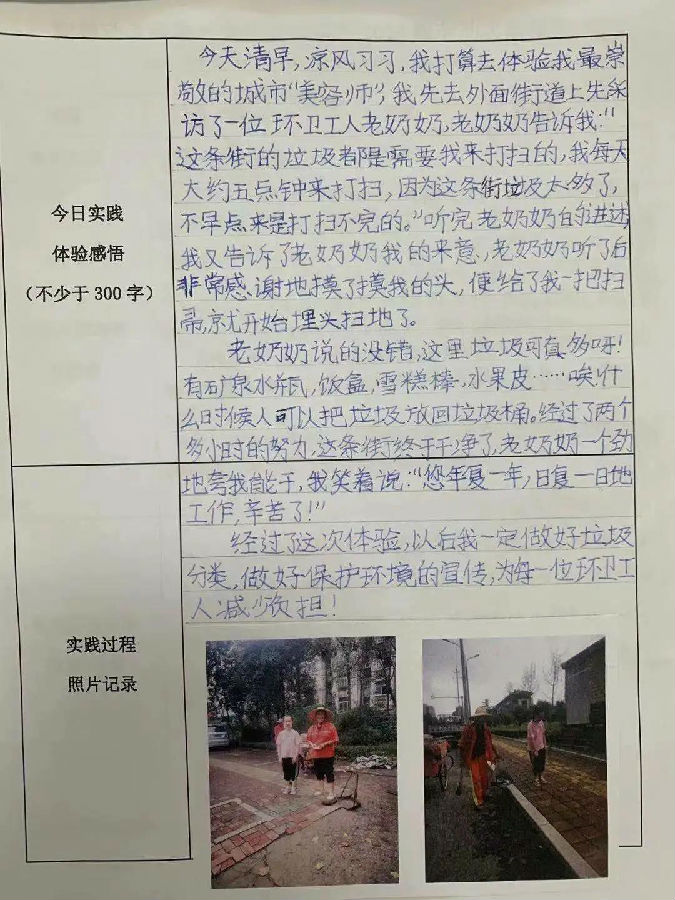 今日实践
体验感悟
（不少于 300 字）
今天清早，凉风习习，我打算去体验我最崇
敬的城市“美容师”，我先去外面街道上先采
访了一位环卫工人老奶奶，老奶奶告诉我：“
这条街的垃圾都是需要我来打扫的，我每天
大约五点钟来打扫，因为这条街垃圾太多了，
不早点来是打扫不完的。”听完老奶奶的讲述
我又告诉了老奶奶我的来意，老奶奶听了后
非常感谢地摸了摸我的头，便给了我一把扫
帚，就开始埋头扫地了。
老奶奶说的没错，这里垃圾可真多呀！
有矿泉水瓶，饭盒，雪糕棒，水果皮……唉！什
么时候人可以把垃圾放回垃圾桶。经过了两个
多小时的努力，这条街终于干净了，老奶奶一个劲
地夸我能干，我笑着说：“您年复一年，日复一日地
工作，辛苦了！”
经过了这次体验，以后我一定做好垃圾
分类，做好保护环境的宣传，为每一位环卫工
人减少负担！
实践过程
照片记录